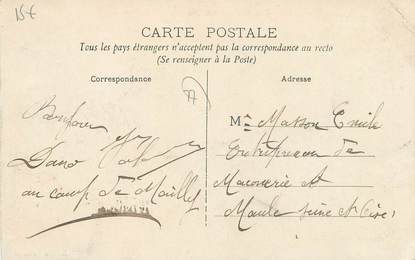 15€
CARTE POSTALE
Tous les pays étrangers n'acceptent pas la correspondance au recto
(Se renseigner à la Poste)
Correspondance
Adresse
77
au camp de Mailly
M Masson Emile
Entrepreneur de
Maconnerie et
Maule Seine et Oise